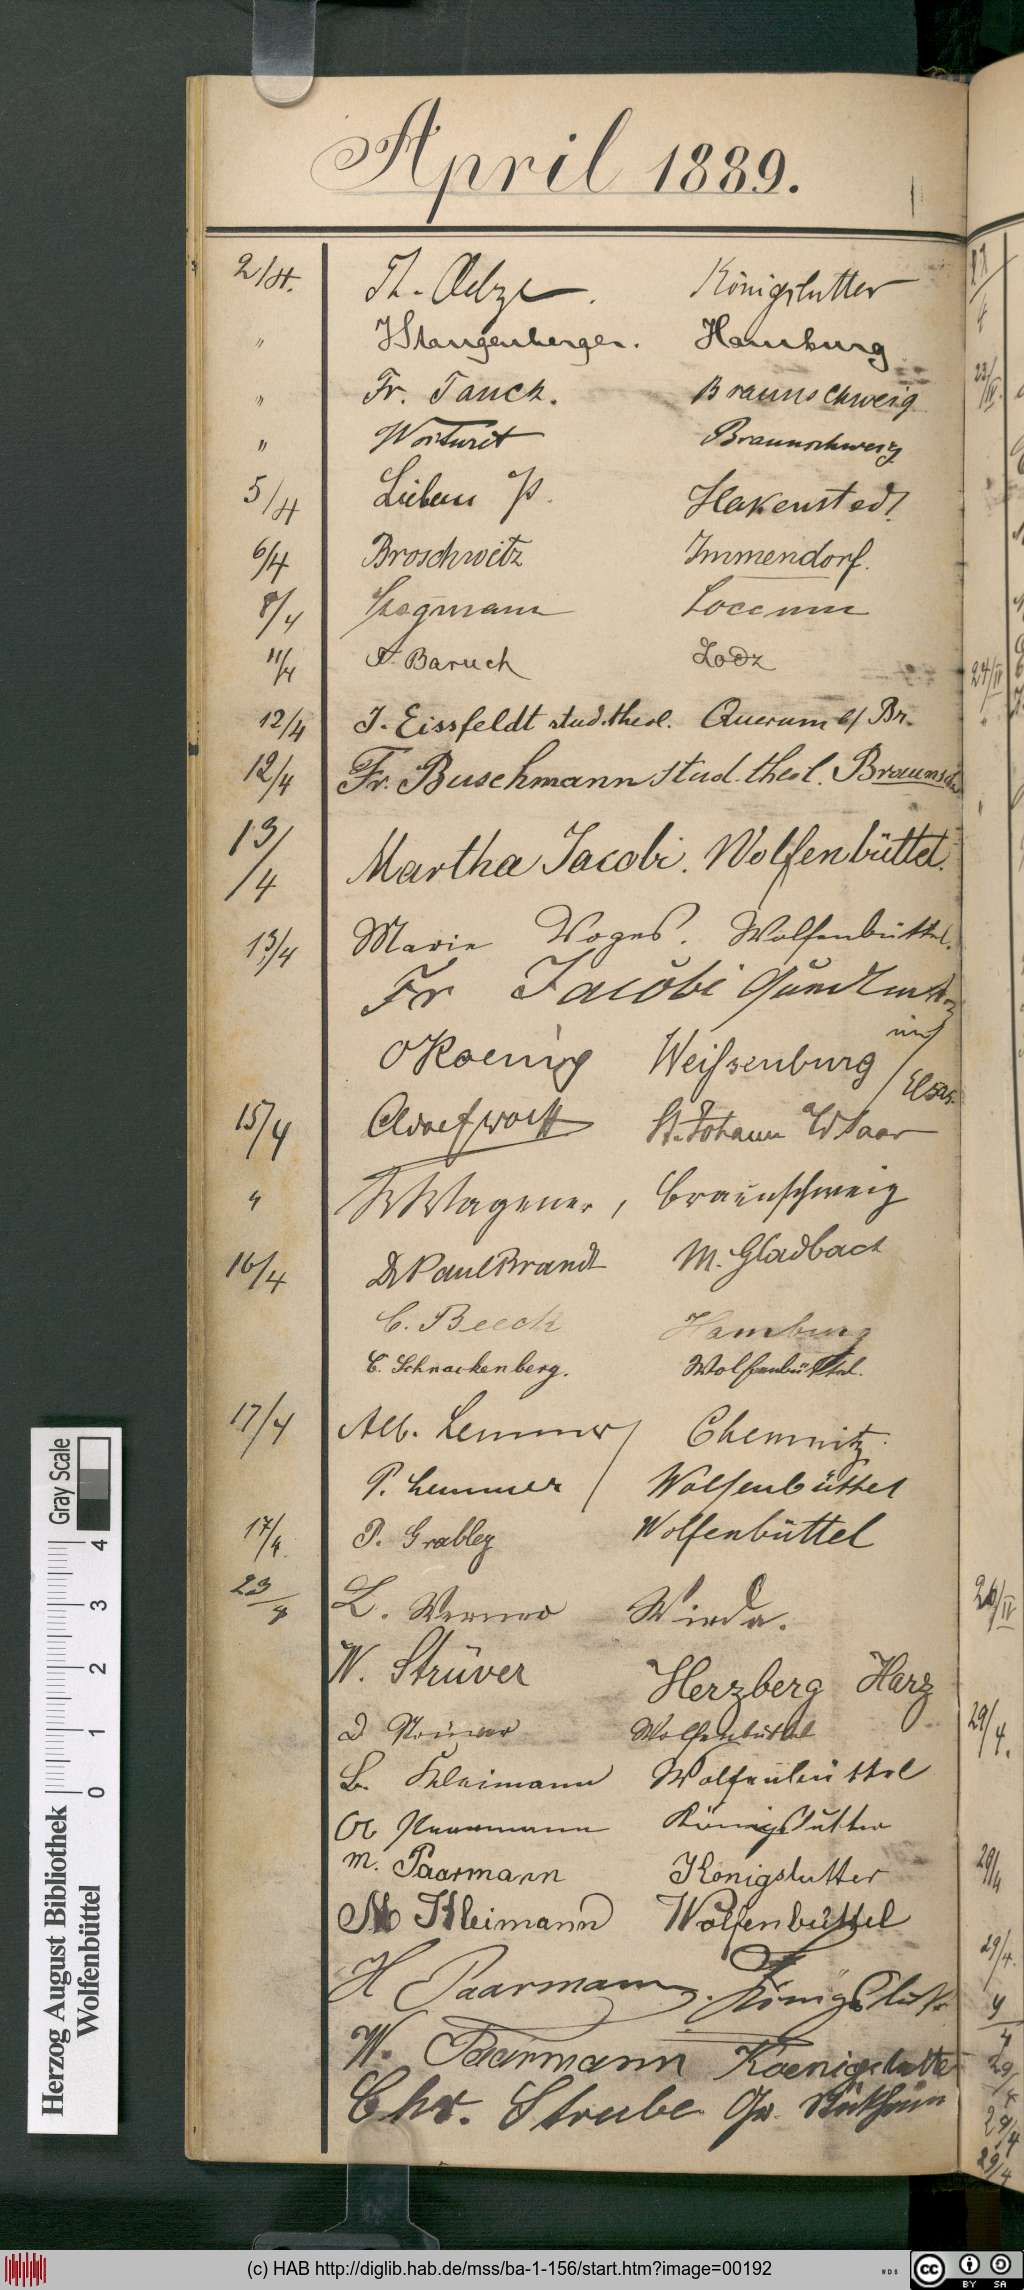 April 1889.
2/4. Th. Oelze. Königslutter
" HStangenberger. Hamburg
" Fr. Tanck. Braunschweig
" Braunschweig
5/4 Lieben P. Hakenstedt
6/4 Broschwitz Immendorf.
8/4 Hegmann Loccum
11/4 A. Baruch Lodz
12/4 J. Eissfeldt stud. theol. Querum b/ Br.
12/4 Fr. Buschmann stud. theol. Braunschw
13/4 Martha Jacobi. Wolfenbüttel.
13/4 Marie Voges. Wolfenbüttel.
Fr Jacobi
OKoenig Weißenburg im/Elsas.
15/4 Adolf Wolff St. Johann Saar
" WWagener, Braunschweig
16/4 Dr Paul Brandt M. Gladbach
C. Beeck Hamburg
C. Schnackenberg. Wolfenbüttel.
17/4 Alb. Lemmer / Chemnitz.
P. Lemmer / Wolfenbüttel
17/4. P. Grabley Wolfenbüttel
23/4 L. Werner Wieda.
W. Strüver Herzberg Harz
Wolfenbüttel
B. Kleimann Wolfenbüttel
Königslutter
M. Paarmann Königslutter
M Kleimann Wolfenbüttel
H Paarmann. Königslutter
W. Paarmann Koenigslutter
Chr. Strube Gr.
22/4
23/IV.
24/IV
"
"
26/IV
29/4.
29/4
29/4.
"
29/4
29/4
29/4
Gray Scale
0 1 2 3 4
Herzog August Bibliothek
Wolfenbüttel
(c) HAB http://diglib.hab.de/mss/ba-1-156/start.htm?image=00192
WDB
cc BY SA